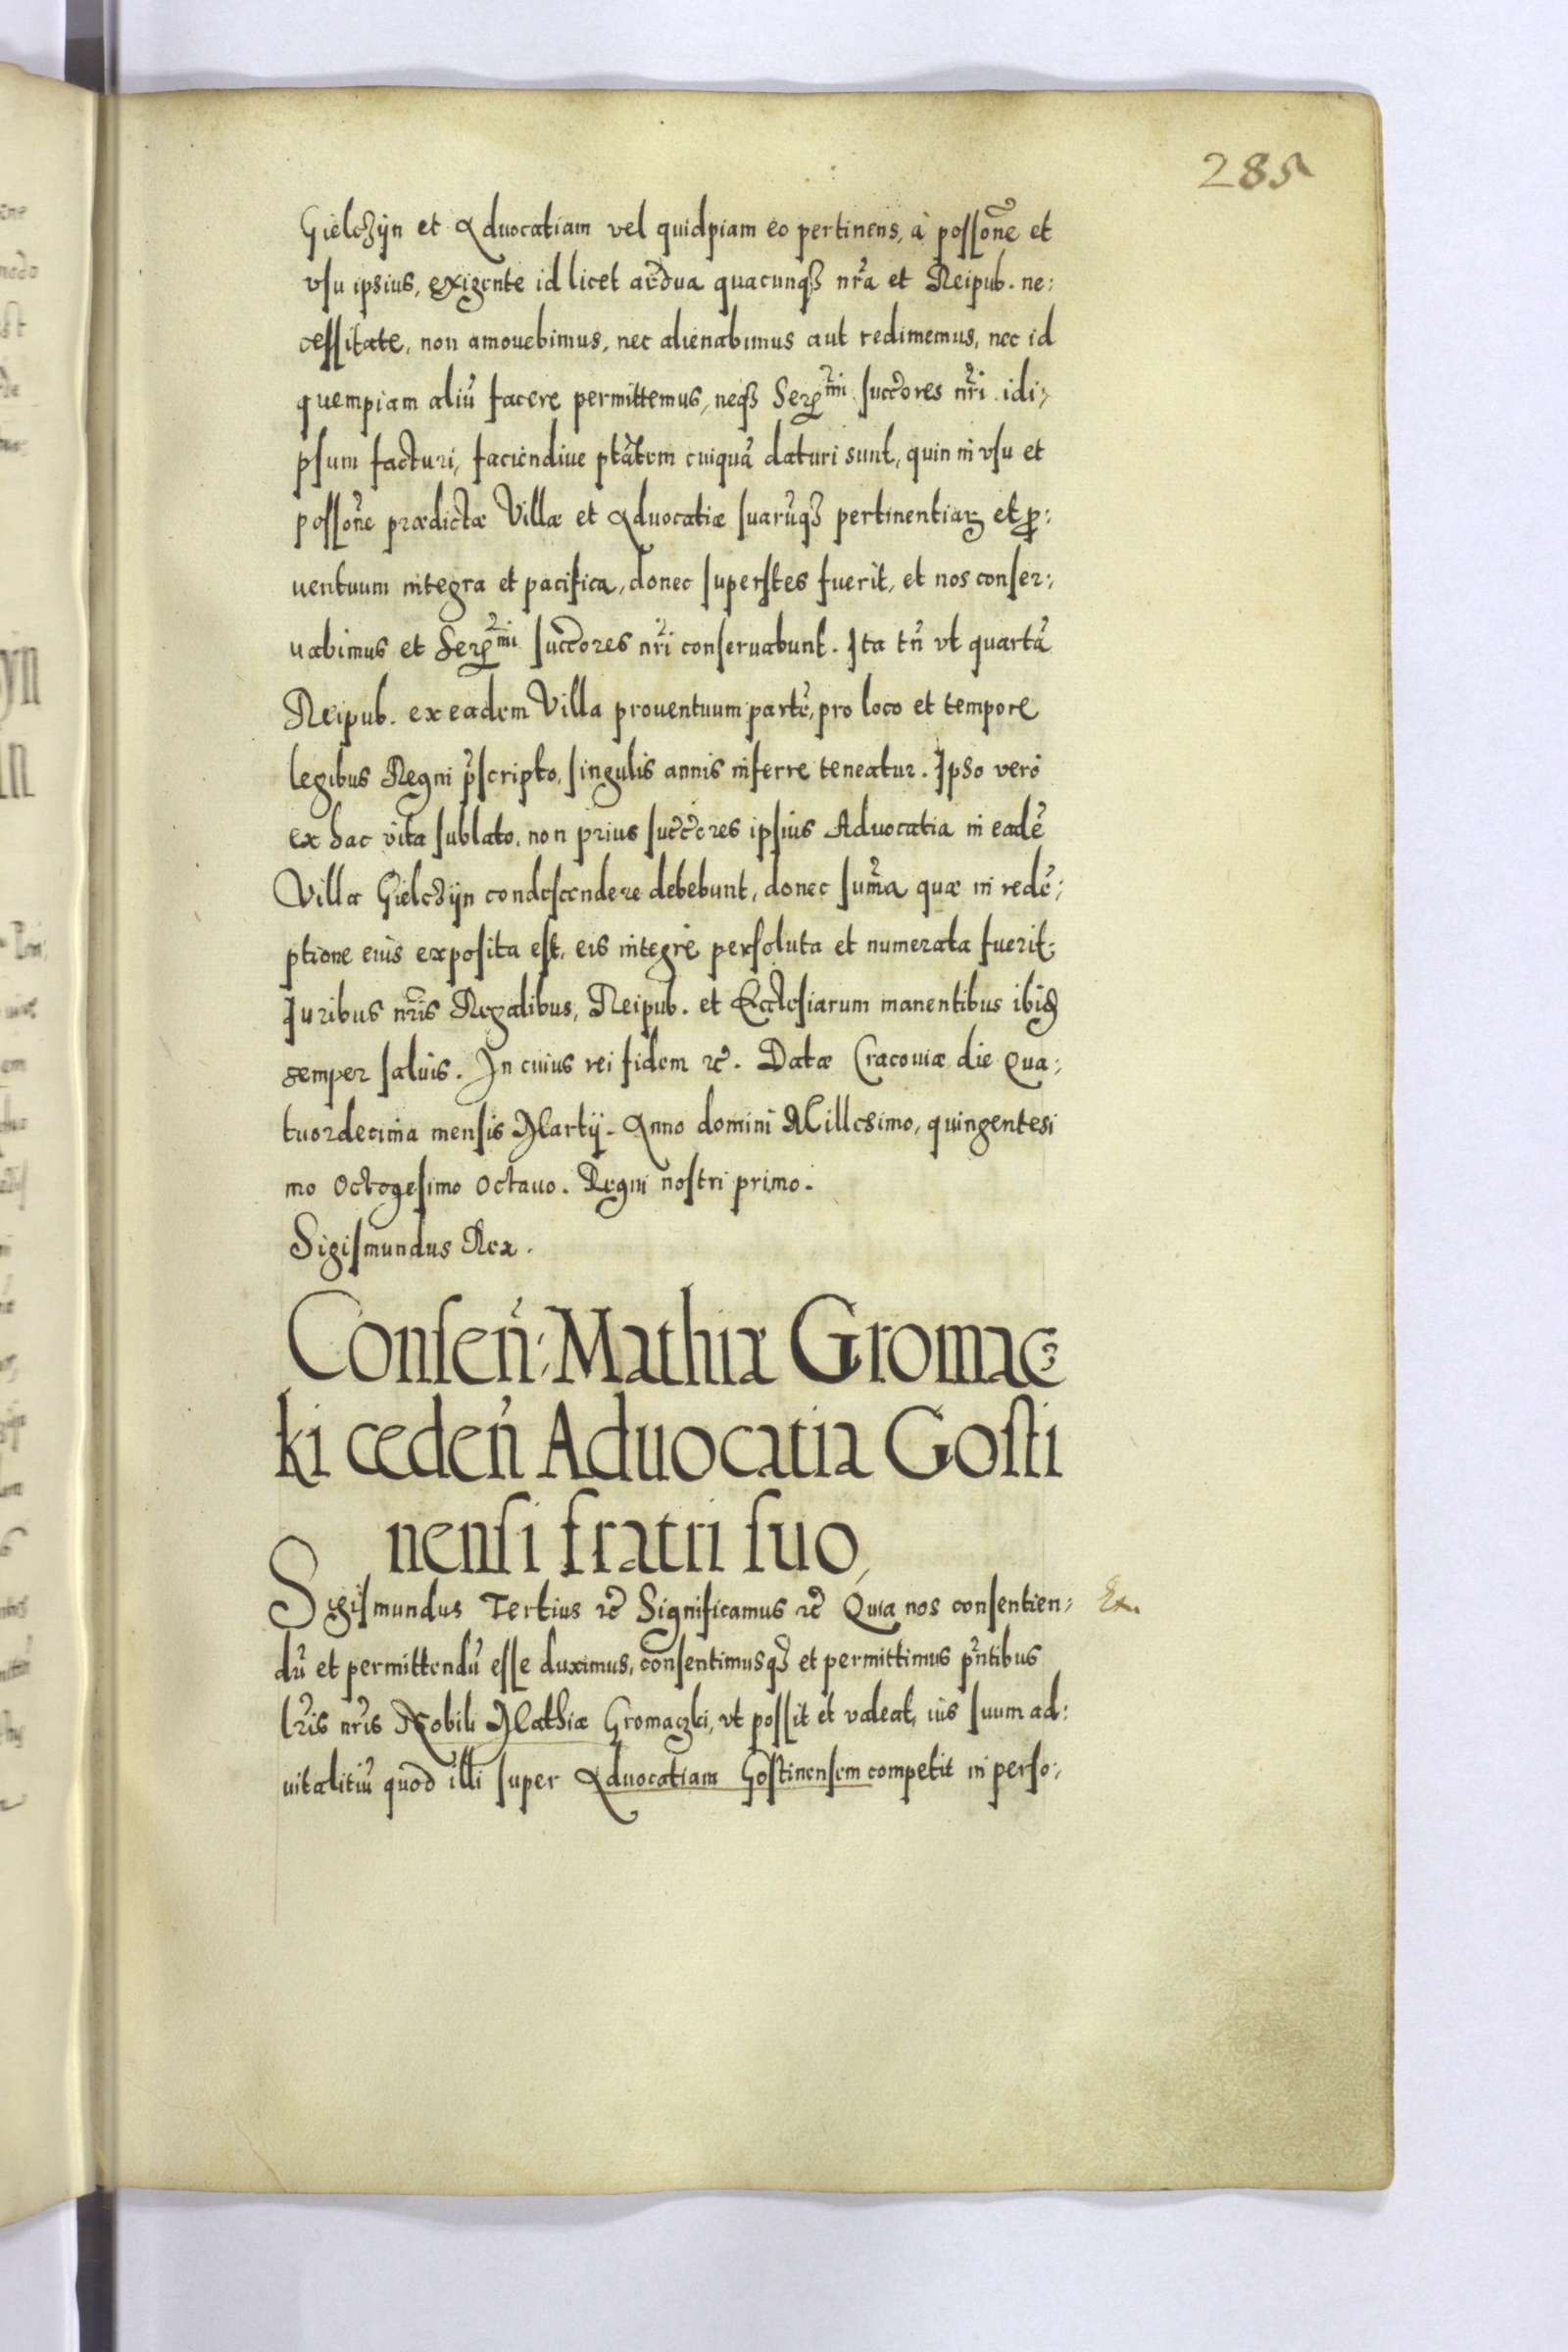 285
Gielczÿn et Aduocatiam vel quidpiam eo pertinens, à possõne et
vsu ipsius, exigente id licet ardua quacunqȝ nr̃a et Reipub. ne:
cessitate, non amouebimus, nec alienabimus aut redimemus, nec id
quempiam aliũ facere permittemus, neqȝ Ser̃mi succ̃ores nr̃i idi:
psum facturi, faciendiue ptãtem cuiquã daturi sunt, quin in vsu et
possõne prædictæ Villæ et Aduocatiæ suarũqȝ pertinentiaꝝ et ꝓ:
uentuum integra et pacifica, donec superstes fuerit, et nos conser:
uabimus et Ser̃mi succ̃ores nr̃i conseruabunt. Ita tñ vt quartã
Reipub. ex eadem Villa prouentuum partẽ, pro loco et tempore
legibus Regni p̃scripto, singulis annis inferre teneatur. Ipso verò
ex hac vita sublato, non prius succ̃ores ipsius Aduocatia in eadẽ
Villa Gielczÿn condescendere debebunt, donec sum̃a quæ in redẽ:
ptione eius exposita est, eis integrè persoluta et numerata fuerit:
Iuribus nr̃is Regalibus, Reipub. et Ecclesiarum manentibus ibiđ
semper saluis. In cuius rei fidem ⁊c̃. Datæ Cracouiæ die Qua:
tuordecima mensis Martij. Anno domini Millesimo, quingentesi
mo Octogesimo Octauo. Regni nostri primo.
Sigismundus Rex.
Conseñ: Mathiæ Gromac
ki cedeñ Aduocatia Gosti
nensi fratri suo,
Sigismundus Tertius ⁊c̃ Significamus ⁊c̃ Quia nos consentien: Ex.
dũ et permittendũ esse duximus, consentimusqȝ et permittimus p̃ntibus
lr̃is nr̃is Nobili Mathiæ Gromaczki, vt possit et valeat, ius suum ad:
uitalitiũ quod illi super Aduocatiam Gostinensem competit in perso: